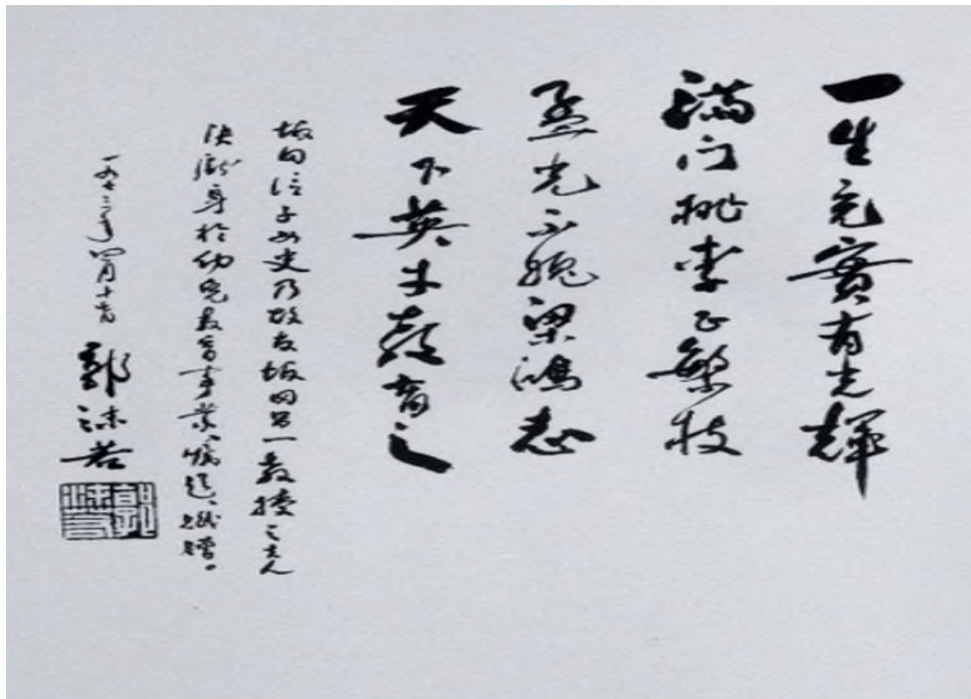 一生充實有光輝
滿门桃李正繁枝
孟光不愧梁鴻志
天下英才教育之
坂田信子女史乃故友坂田昌一教授之夫人
决獻身於幼児教育事業，嘱題，識贈。
一九七二年四月十一日
郭沫若